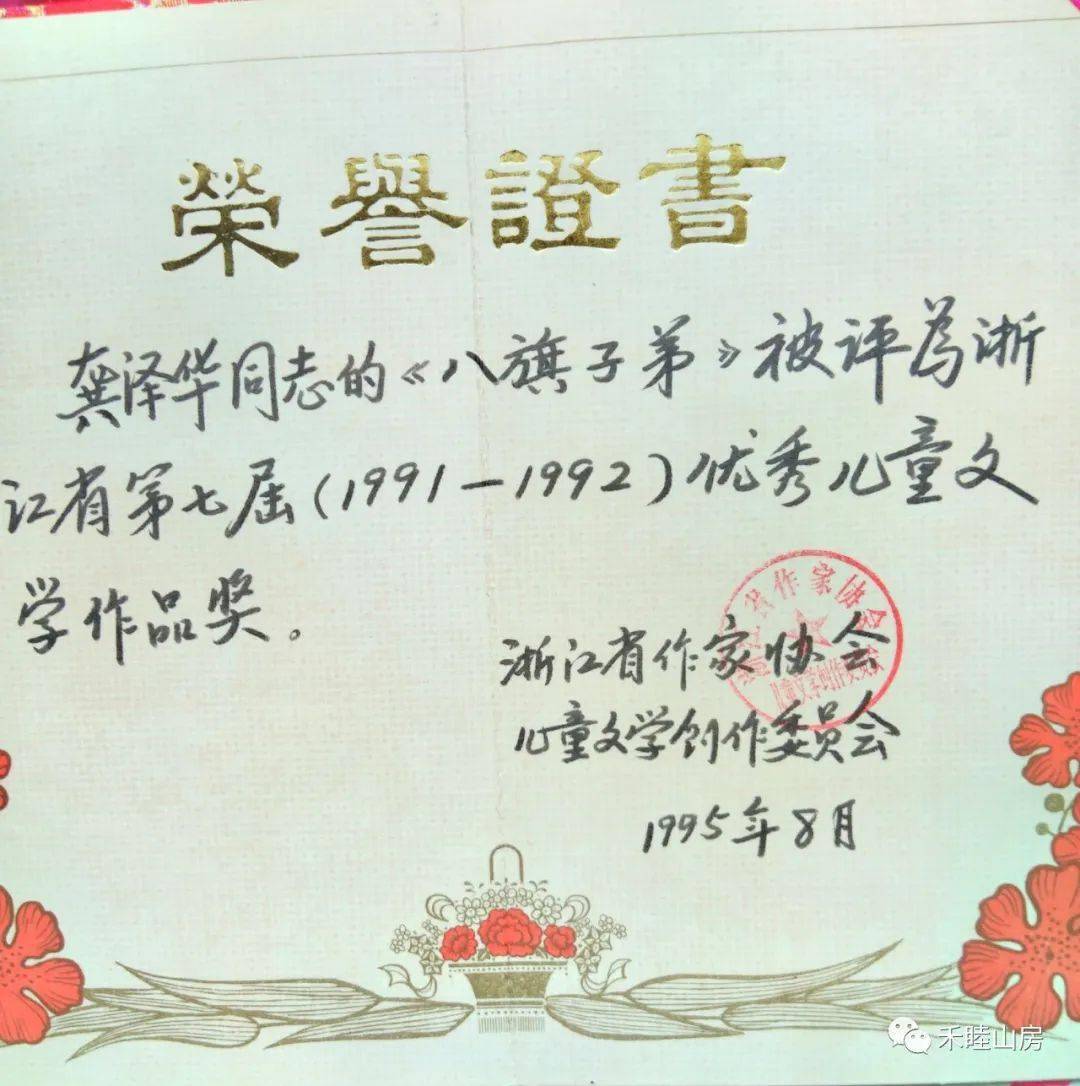 榮譽證書
龚泽华同志的《八旗子弟》被评为浙
江省第七届(1991—1992)优秀儿童文
学作品奖。
浙江省作家协会
儿童文学创作委员会
1995年8月
省作家协会
儿童文学创作委员会
禾睦山房